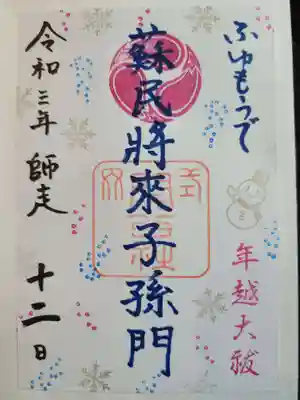 ふゆもうで
年越大祓
蘇民將來子孫門
令和三年 師走 十二日